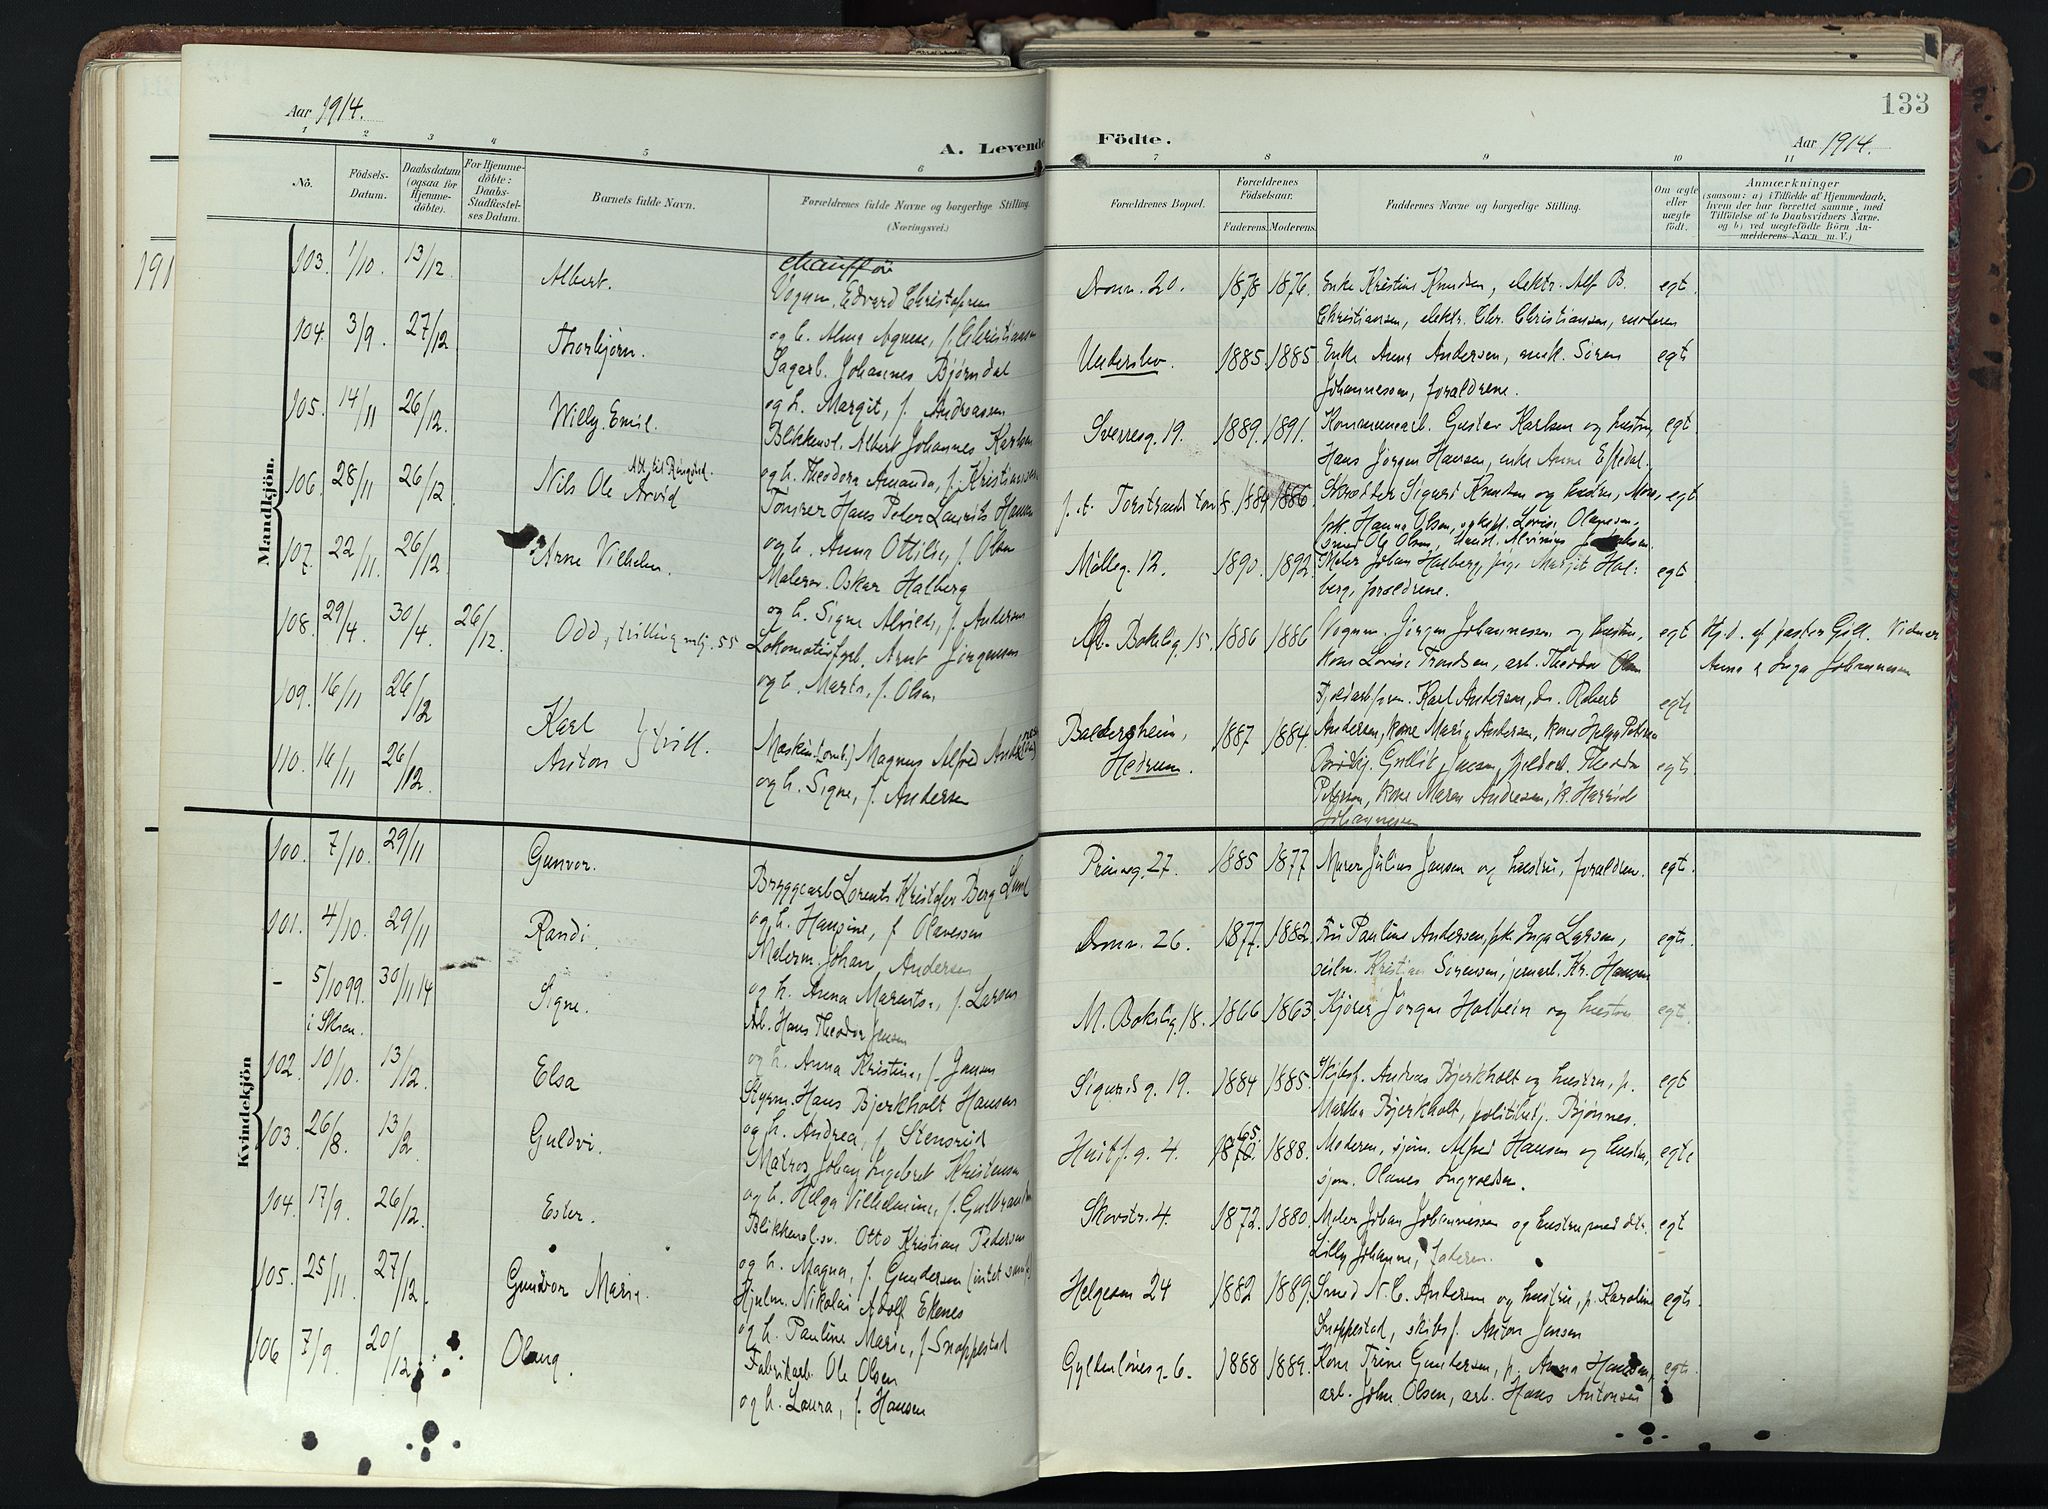 Aar 1914.
133
A. Levende Födte.
Aar 1914.
1 2 3 4 5 6 7 8 9 10 11
No.
Födsels-Datum.
Daabsdatum (ogsaa for Hjemmedöbte).
For Hjemmedöbte: Daabs-Stadfæstelses Datum.
Barnets fulde Navn.
Forældrenes fulde Navne og borgerlige Stilling.
(Næringsvei.)
Forældrenes Bopæl.
Forældrenes Födselsaar.
Faderens. Moderens.
Faddernes Navne og borgerlige Stilling.
Om ægte eller uægte födt.
Anmærkninger
(saasom: a) i Tilfælde af Hjemmedaab, hvem der har forrettet samme, med Tilföielse af to Daabsvidners Navne, og b) ved uægtefödte Börn Anmelderens Navn m. V.)
Mandkjön.
103. 1/10. 13/12. Albert.
chauffør
Vognm. Edvard Christophersen
og h. Alma Agnese, f. Christiansen
Dronn. 20. 1878 1876. Enke Kristine Knudsen, elektr. Alf B.
Christiansen, elektr. Chr. Christiansen, moderen
egt.
104. 3/9. 27/12 Thorbjørn.
Sagarb. Johannes Bjørndal
og h. Margit, f. Andreassen
Undersbo. 1885. 1885. Enke Anna Andersen, snik. Søren
Johannessen, forældrene.
egt
105. 14/11 26/12. Willy Emil.
Blikkensl. Albert Johannes Karlsen
og h. Theodora Amanda, f. Kristiansen
Sverresg. 19. 1889. 1891. Kommunearb. Gustav Karlsen og hustru
Hans Jørgen Hansen, enke Anne
egt
106. 28/11 26/12 Nils Ole Arvid
Tømrer Hans Peter Laurits Hansen
og h. Anna Ottilie, f. Olsen
p. t. Torstrand 1884 1886. Skrædder Sigurd Knutsen og hustru,
Hanna Olsen, Lovise
smed Ole Olsen,
egt
107. 22/11. 26/12 Arne Vilhelm.
Malersv. Oskar Halberg
og h. Signe Alvilde, f. Andersen
Mølleg. 12. 1890. 1892. Maler Johan Halberg, pige Margit Hal-
berg, forældrene.
egt
108. 29/4. 30/4. 26/12. Odd, tvilling mlj. 55
Lokomotivfyrb. Arnt Jørgensen
og h. Marta, f. Olsen
Bøkelig. 15. 1886 1886 Vognm. Jørgen Johannessen og hustru,
kone Lovise Trondsen, arb. Theodor Olsen
egt Hj.d. af pastor Gill. Vidner
Anna & Inga Johannessen
109. 16/11 26/12 Karl
110. 16/11 26/12 Anton } tvill.
Maskin (omb.) Magnus Alfred Andersen
og h. Signe, f. Andersen
Baldersheim,
Hedrum. 1887 1884. Karl Andersen, do. Robert
Andersen, kone Marie Andersen, kone Helga Petersen
Gullik Theodor
Petersen, kone Maren Andresen, k. Harriet
Johannessen
egt.
egt.
Kvindekjön
100. 7/10. 29/11 Gunvor.
Bryggearb Lorents Kristofer Berg Lund
og h. Hansine, f. Olavesen
Prinseg. 27. 1885 1877 Murer Julius Jansen og hustru, forældrene.
egt.
101. 4/10. 29/11 Randi.
Malerm. Johan Andersen
og h. Anna f. Larsen
Dronn. 26. 1877. 1882. Fru Pauline Andersen, pk. Inga Larsen,
seilm. Kristian Sørensen, jernarb. Kr. Hansen
egt.
- 5/10 99. i Skien. 30/11 14 Signe.
Arb. Hans Theodor Jensen
og h. Anna Kristine, f. Jansen
M. Bøkelig. 18. 1866 1863. Kjører Jørgen Holbein og hustru
egt.
102. 10/10. 13/12. Elsa
Styrm. Hans Bjerkholt Hansen
og h. Andrea, f. Stensrud
Sigurdsg. 19. 1884 1885. Skibsf. Andreas Bjerkholt og hustru, p.
Martha Bjerkholt, politibetj. Bjønnes.
egt
103. 26/8. 13/12. Guldvi.
Matros Johan Ingebret Kristensen
og h. Helga Vilhelmine, f. Gulbrandsen
Huitf.g. 4. 1888. Moderen, sjøm. Alfred Hansen og hustru,
sjøm. Olaves Ingvoldsen.
egt.
104. 17/9. 26/12. Ester.
Blikkensl.sv. Otto Kristian Pedersen
og h. Magna, f. Gundersen
Skovstr. 4. 1872. 1880. Maler Johan Johannessen og hustru med dtr.
Lilly Johanne, faderen.
egt
105. 25/11. 27/12. Gundvor Marie.
Hjulm. Nikolai Adolf Ekenes
og h. Pauline Marie, f. Snoppestad
Helgesen 24 1882 1889. Smed N. C. Andersen og hustru, p. Karoline
Snoppestad, skibsf. Anton Jensen
egt.
106 7/9. 20/12. Olaug.
Fabrikarb. Ole Olsen
og h. Laura, f. Hansen
Gyldenløvesg. 6. 1888 1889. Kone Trine Gundersen, p. Anna Hansen,
arb. John Olsen, arb. Hans Antonsen
egt.